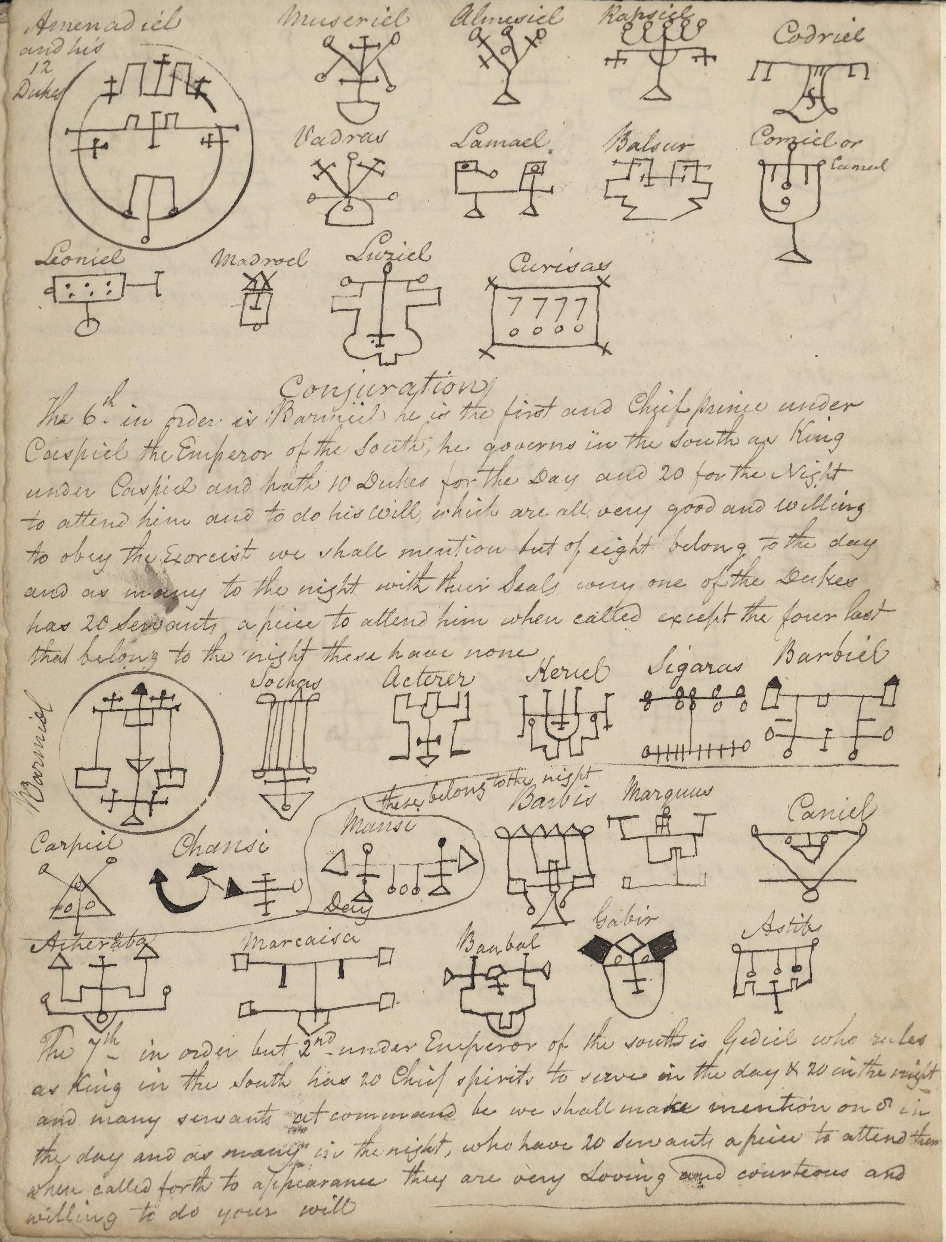 Amenadiel Museriel Almesiel Rapsiel Codriel
and his
12
Dukes
Vadras Lamael Balsur Corziel or
Leoniel Madroel Luziel Curisas
7 7 7 7
Conjuration
The 6th in order is Barmiel he is the first and Chief prince under
Caspiel the Emperor of the South, he governs in the South as King
under Caspiel and hath 10 Dukes for the Day and 20 for the Night
to attend him and to do his will, which are all very good and willing
to obey the Exorcist we shall mention but of eight belong to the day
and as many to the night with their Seals every one of the Dukes
has 20 Servants a piece to attend him when called except the four last
that belong to the night these have none
Barmiel Sochas Acterer Keriel Sigaras Barbiel
these belong to the night
Carpiel Chansi Mansi Barbis Marquus Caniel
Day
Acheraba Marcaisa Baabal Gabir Astib
The 7th in order but 2nd under Emperor of the south is Gediel who rules
as King in the South has 20 Chief spirits to serve in the day & 20 in the night
and many servants at command be we shall make mention on 8 in
the day and as many in the night, who have 20 Servants a piece to attend them
when called forth to appearance they are very Loving and courteous and
willing to do your will